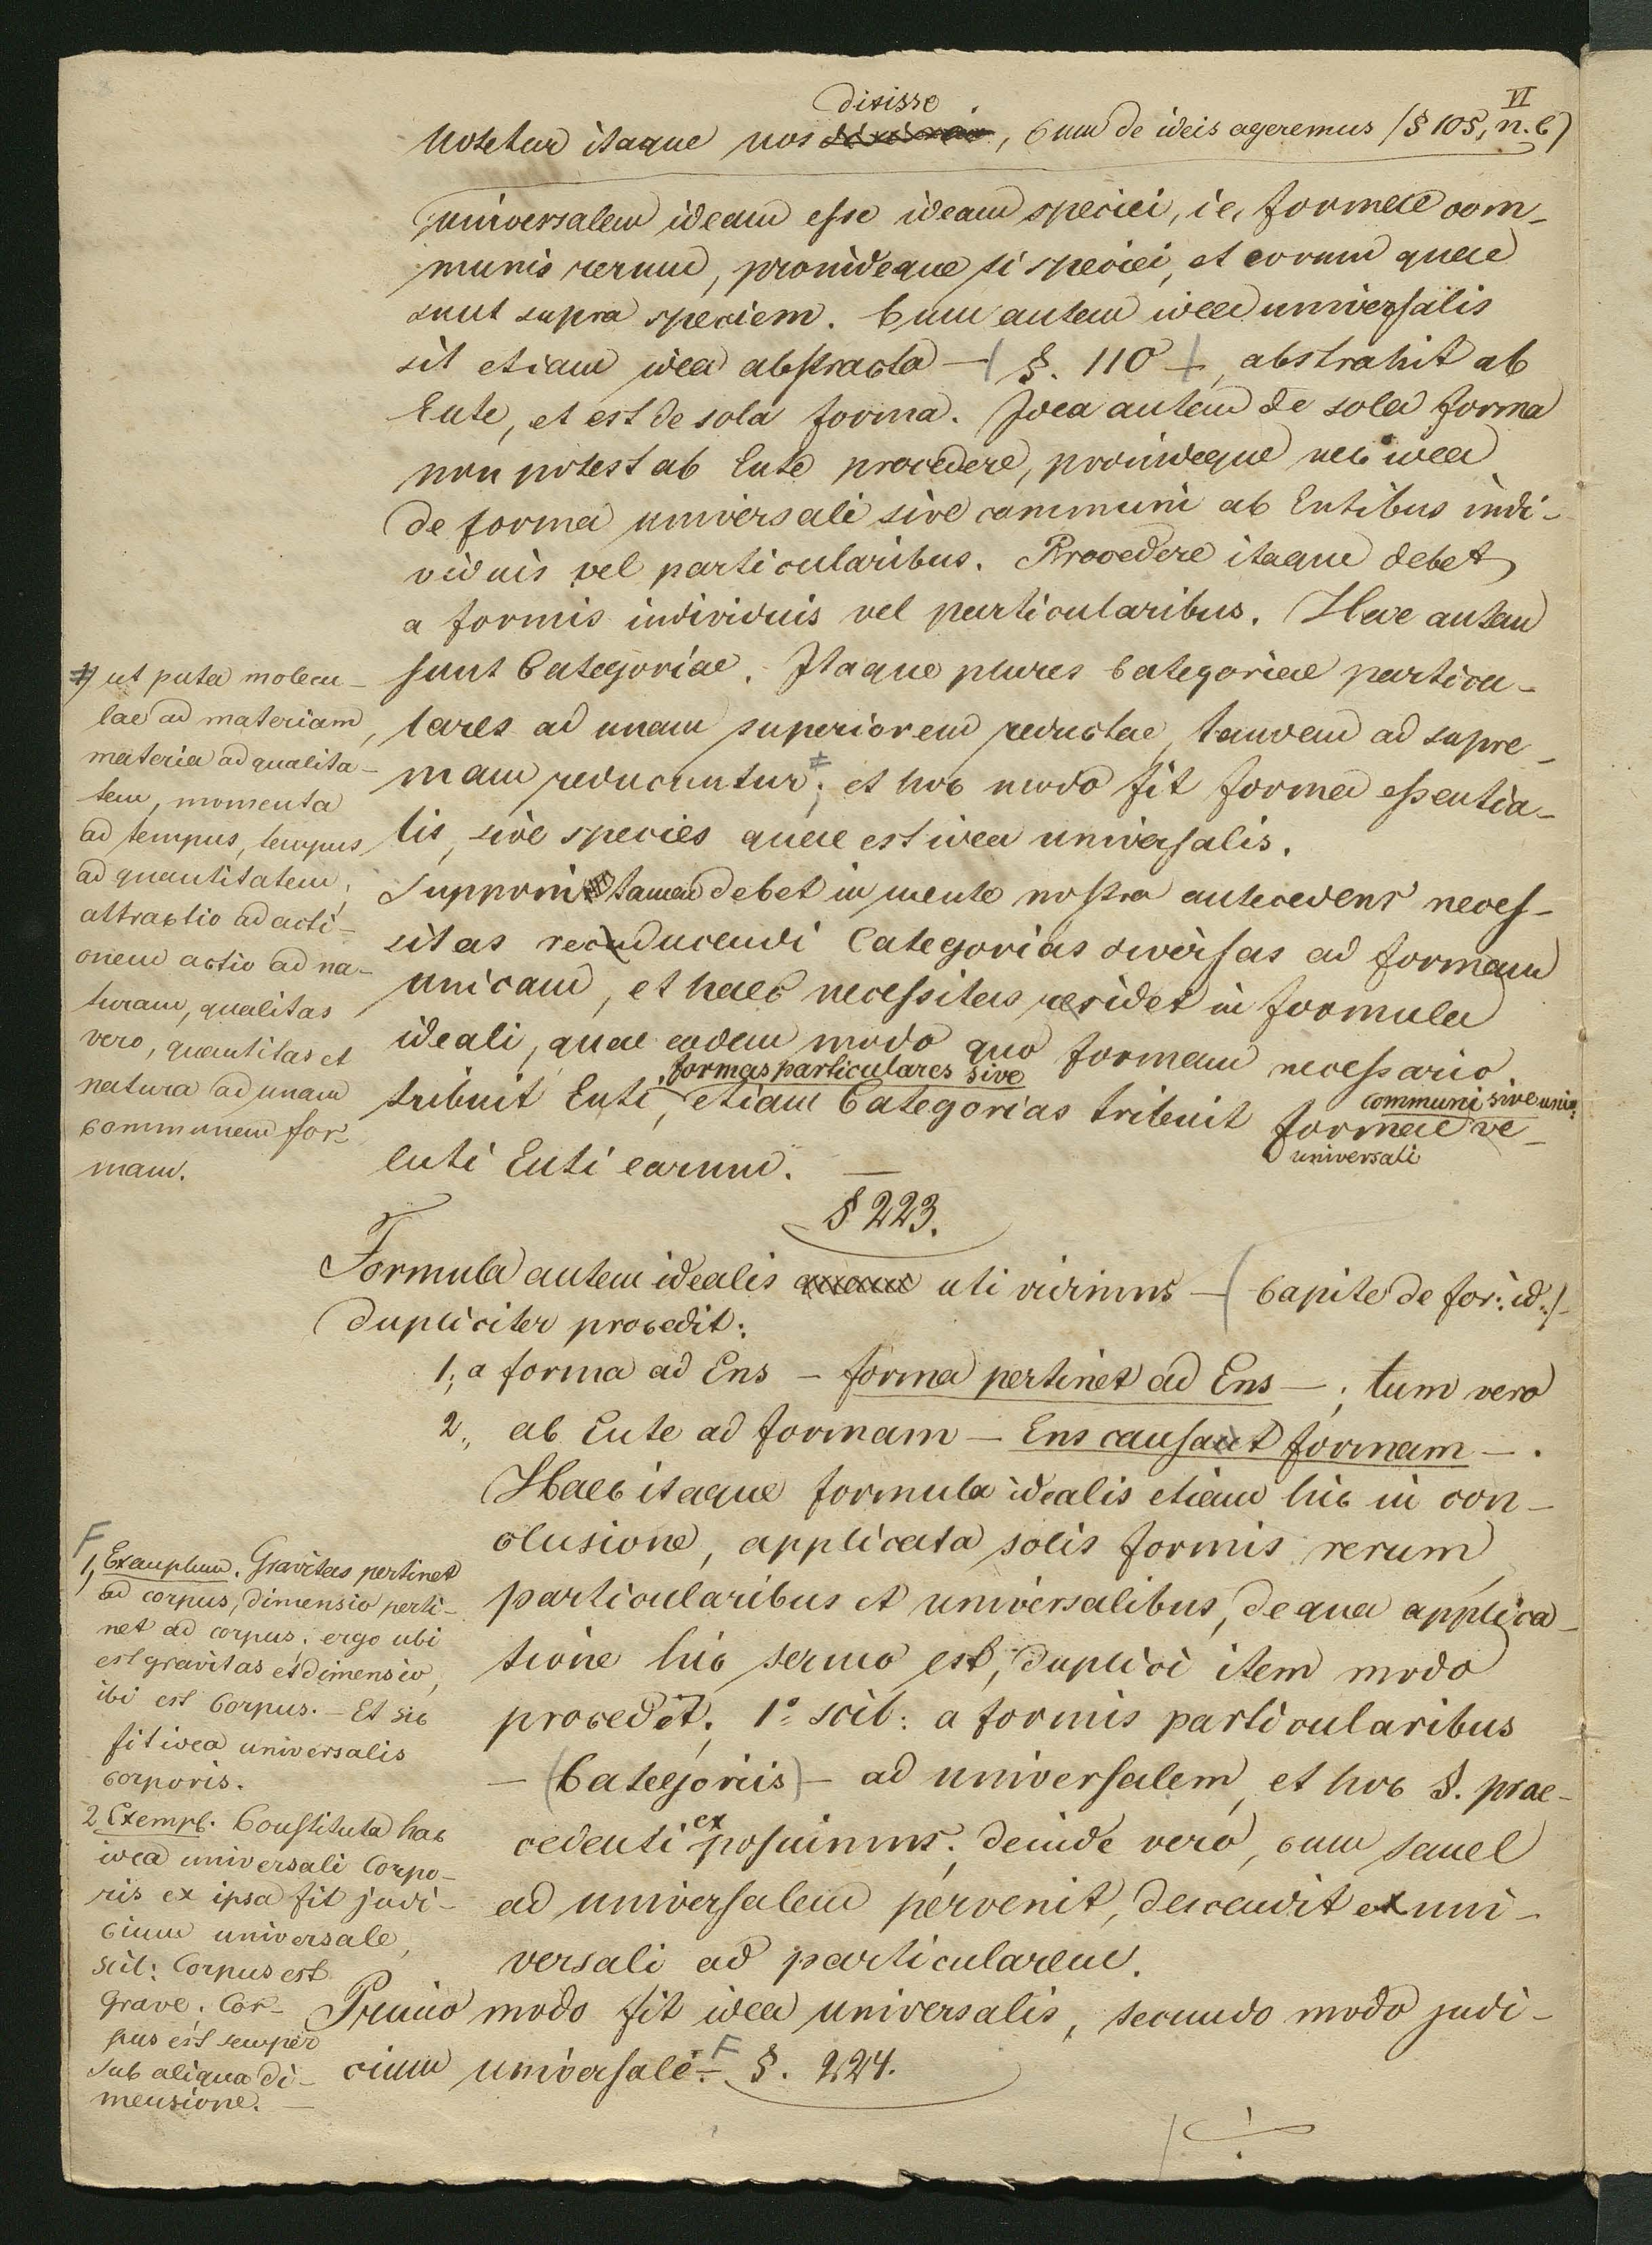 VI
dixisse
Notetur itaque nos, cum de ideis ageremus (§ 105, n. 6)
universalem ideam esse ideam speciei, i.e. formae com-
munis rerum, proindeque fi speciei, et eorum quae
sunt supra speciem. Cum autem idea universalis
sit etiam idea abstracta — (§. 110) —, abstrahit ab
Ente, et est de sola forma. Idea autem de sola forma
non potest ab Ente procedere, proindeque nec idea
de forma universali sive communi ab Entibus indi-
viduis vel particularibus. Procedere itaque debet
a formis individuis vel particularibus. Hae autem
sunt Categoriae. Itaque plures Categoriae particu-
lares ad unam superiorem reductae, tandem ad supre-
mam reducuntur ǂ; et hoc modo fit forma essentia-
lis, sive species quae est idea universalis.
Supponi tamen debet in mente nostra antecedens neces-
sitas reducendi Categorias diversas ad formam
unicam, et haec necessitas residet in formula
ideali, quae eodem modo quo formam necessario
formas particulares sive
tribuit Enti, etiam Categorias tribuit formae ve-
communi sive unic:
universali
luti Enti earum. —
ǂ) ut puta molecu-
lae ad materiam,
materia ad qualita-
tem, momenta
ad tempus, tempus
ad quantitatem,
attractio ad acti-
onem actio ad na-
turam, qualitas
vero, quantitas et
natura ad unam
communem for-
mam.
§ 223.
Formula autem idealis uti vidimus — (Capite de for: id:) -
dupliciter procedit:
1., a forma ad Ens — forma pertinet ad Ens — ; tum vero
2., ab Ente ad formam — Ens causat formam — .
Haec itaque formula idealis etiam hic in con-
clusione, applicata solis formis rerum
particularibus et universalibus, de qua applica-
tione hic sermo est, duplici item modo
procedit. 1º scil: a formis particularibus
— (Categoriis) — ad universalem, et hoc §. prae-
cedenti exposuimus; deinde vero, cum semel
ad universalem pervenit, descendit ex uni-
versali ad particularem.
Primo modo fit idea universalis, secundo modo judi-
cium universale. F §. 224.
F
1, Exemplum. Gravitas pertinet
ad corpus, dimensio perti-
net ad corpus; ergo ubi
est gravitas et dimensio,
ibi est Corpus. — Et sic
fit idea universalis
corporis.
2 Exempl. Constituta hac
idea universali Corpo-
ris ex ipsa fit judi-
cium universale,
scil: Corpus est
grave. Cor-
pus est semper
sub aliqua di-
mensione. —